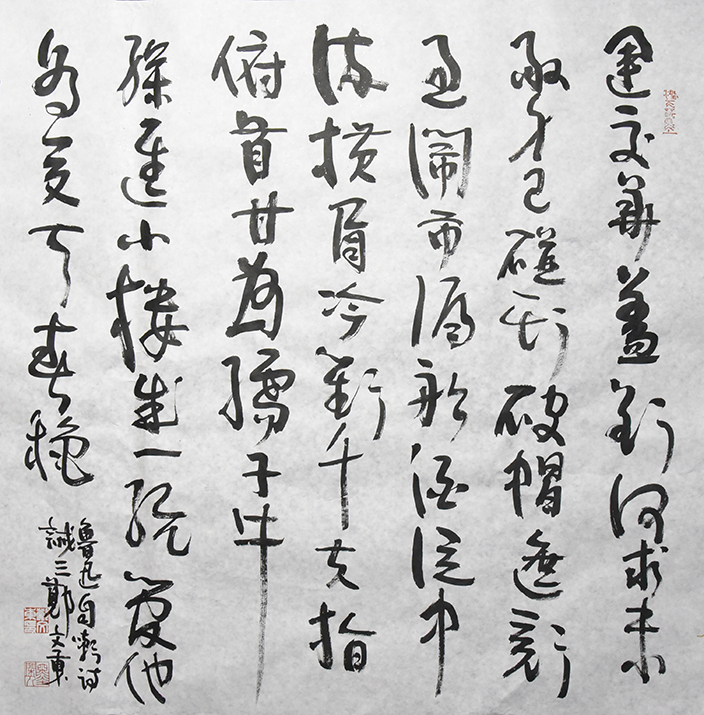 運交華蓋欲何求未
敢身已碰頭破帽遮顏
過鬧市漏船酒泛中
流横眉冷對千夫指
俯首甘為孺子牛
躲進小樓成一統管他
冬夏与春秋
魯迅自嘲詩
誠三鄭文東